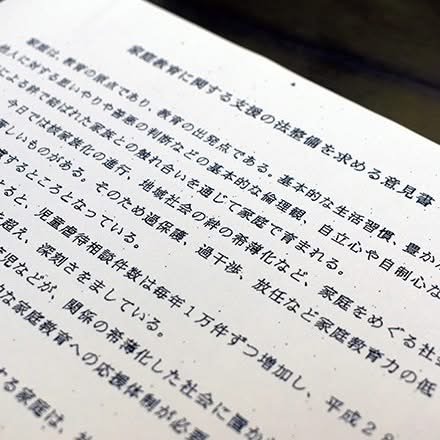 家庭教育に関する支援の法整備を求める意見書
家庭は、教育の原点であり、教育の出発点である。基本的な生活習慣、豊か
他人に対する思いやりや善悪の判断などの基本的な倫理観、自立心や自制心な
による絆で結ばれた家族との触れ合いを通じて家庭で育まれる。
今日では核家族化の進行、地域社会の絆の希薄化など、家庭をめぐる社会
著しいものがある。そのため過保護、過干渉、放任など家庭教育力の低
するところとなっている。
ると、児童虐待相談件数は毎年1万件ずつ増加し、平成28
を超え、深刻さをましている。
児などが、関係の希薄化した社会に置か
な家庭教育への応援体制が必要
る家庭は、社